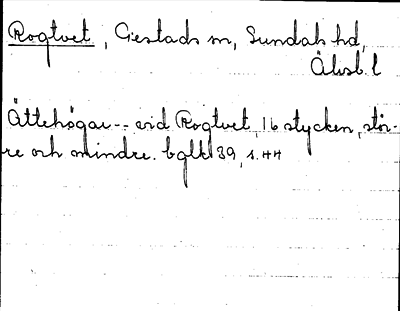 Rogtvet, Gestads sn, Sundals hd,
Älvsb. l
Ättehögar -- vid Rogtvet, 16 stycken, stör-
re och mindre. bglk 39, s. 44